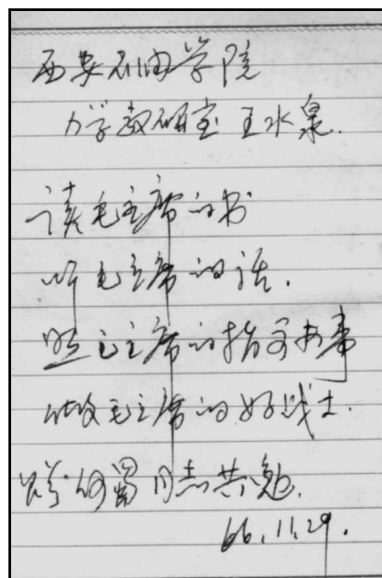 西安石油学院
力学教研室 王水泉.
读毛主席的书
听毛主席的话.
照毛主席的指示办事
做毛主席的好战士.
与何蜀同志共勉.
66.11.29.